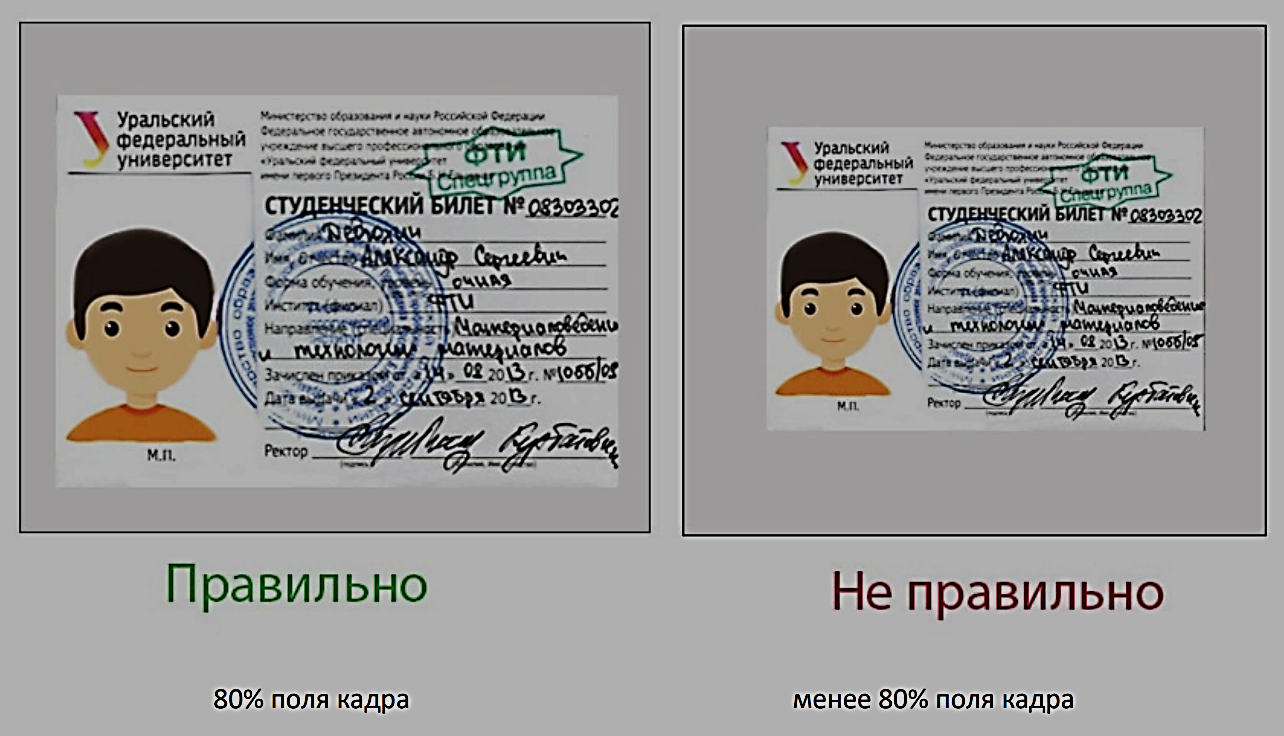 Уральский
федеральный
университет
Министерство образования и науки Российской Федерации
Федеральное государственное автономное образовательное
учреждение высшего профессионального образования
«Уральский федеральный университет
имени первого Президента России Б.Н.
ФТИ
Спецгруппа
СТУДЕНЧЕСКИЙ БИЛЕТ № 08303302
Фамилия
Имя, отчество Александр Сергеевич
Форма обучения, очная
Институт (филиал) ФТИ
Направление (специальность) Материаловедени
и технологии материалов
Зачислен приказом от «14» 08 2013 г. №1066/08
Дата выдачи « 2 » сентября 2013 г.
Ректор
(подпись)
М.П.
Уральский
федеральный
университет
Министерство образования и науки Российской Федерации
Федеральное государственное автономное образовательное
учреждение высшего профессионального
«Уральский федеральный университет
имени первого Президента России
ФТИ
Спецгруппа
СТУДЕНЧЕСКИЙ БИЛЕТ № 08303302
Фамилия
Имя, отчество Александр Сергеевич
Форма обучения, очная
Институт (филиал) ФТИ
Направление (специальность) Материаловедени
и технологии материалов
Зачислен приказом от «14» 08 2013 г. №1066/08
Дата выдачи « 2 » сентября 2013 г.
Ректор
(подпись)
М.П.
Правильно
Не правильно
80% поля кадра
менее 80% поля кадра